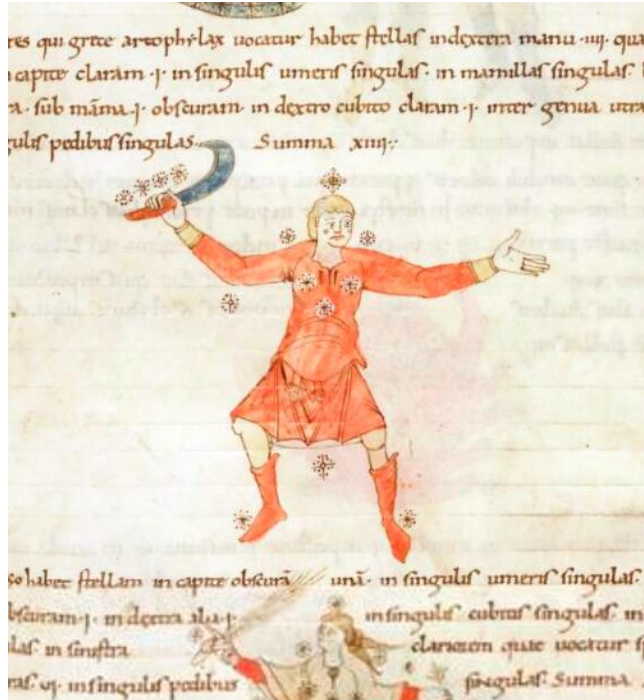 res qui grece artophilax uocatur habet stellas in dextera manu ·iiii· qua
capite claram ·i· in singulis umeris singulas· in mamillas singulas·
ra· sub mãma ·i· obscuram· in dextro cubito claram ·i· inter genua utra
gulis pedibus singulas· Summa xiiii·
so habet stellam in capite obscurã unã· in singulis umeris singulas·
obscuram ·i· in dextra ala ·i· in singulis cubitis singulas· in
las· in sinistra clariorem que uocatur sp
ras· vi· in singulis pedibus singulas· Summa